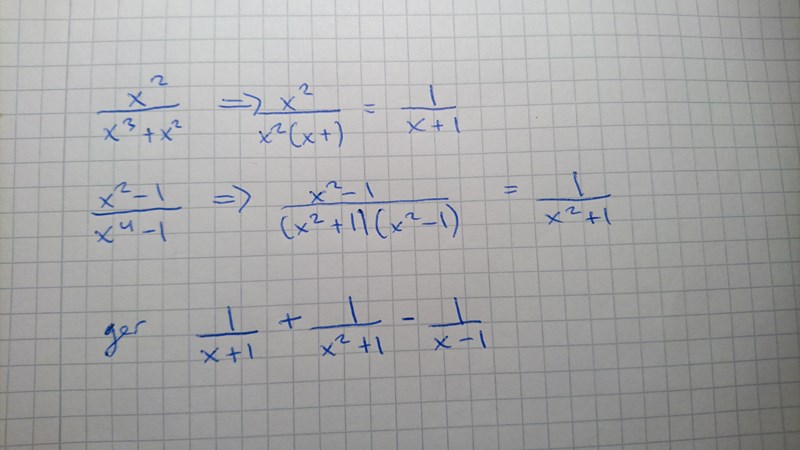 x²/(x³+x²) => x²/(x²(x+)) = 1/(x+1)
(x²-1)/(x⁴-1) => (x²-1)/((x²+1)(x²-1)) = 1/(x²+1)
ger 1/(x+1) + 1/(x²+1) - 1/(x-1)